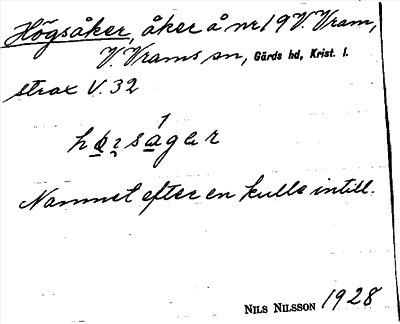 Högsåker, åker å nr 19 V. Vram,
V. Vrams sn, Gärds hd, Krist. l.
strax V. 32
Namnet efter en kulle intill.
NILS NILSSON 1928